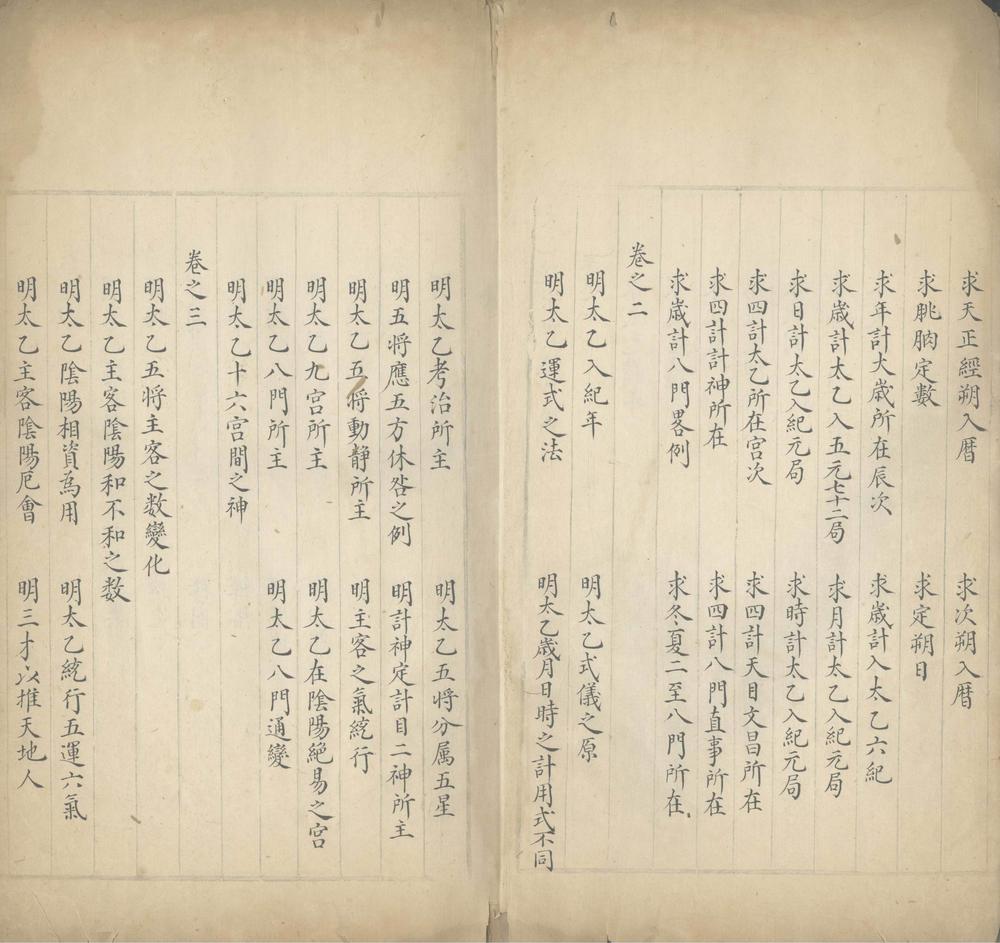 求天正經朔入曆　求次朔入曆
求朓朒定數　求定朔日
求年計大歲所在辰次　求歲計入太乙六紀
求歲計太乙入五元七十二局　求月計太乙入紀元局
求日計太乙入紀元局　求時計太乙入紀元局
求四計太乙所在宮次　求四計天目文昌所在
求四計計神所在　求四計八門直事所在
求歲計八門畧例　求冬夏二至八門所在
卷之二
明太乙入紀年　明太乙式儀之原
明太乙運式之法　明太乙歲月日時之計用式不同
明太乙考治所主　明太乙五將分属五星
明五將應五方休咎之例　明計神定計目二神所主
明太乙五將動静所主　明主客之氣綂行
明太乙九宮所主　明太乙在陰陽絕易之宮
明太乙八門所主　明太乙八門通變
明太乙十六宮間之神
卷之三
明太乙五將主客之数變化
明太乙主客陰陽和不和之数
明太乙陰陽相資為用　明太乙綂行五運六氣
明太乙主客陰陽厄會　明三才以推天地人